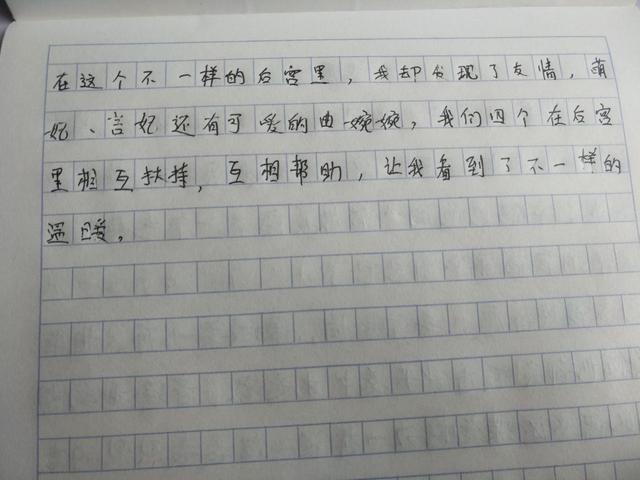 在这个不一样的后宫里，我却发现了友情，萌
妃、言妃还有可爱的曲婉婉，我们四个在后宫
里相互扶持，互相帮助，让我看到了不一样的
温暖。